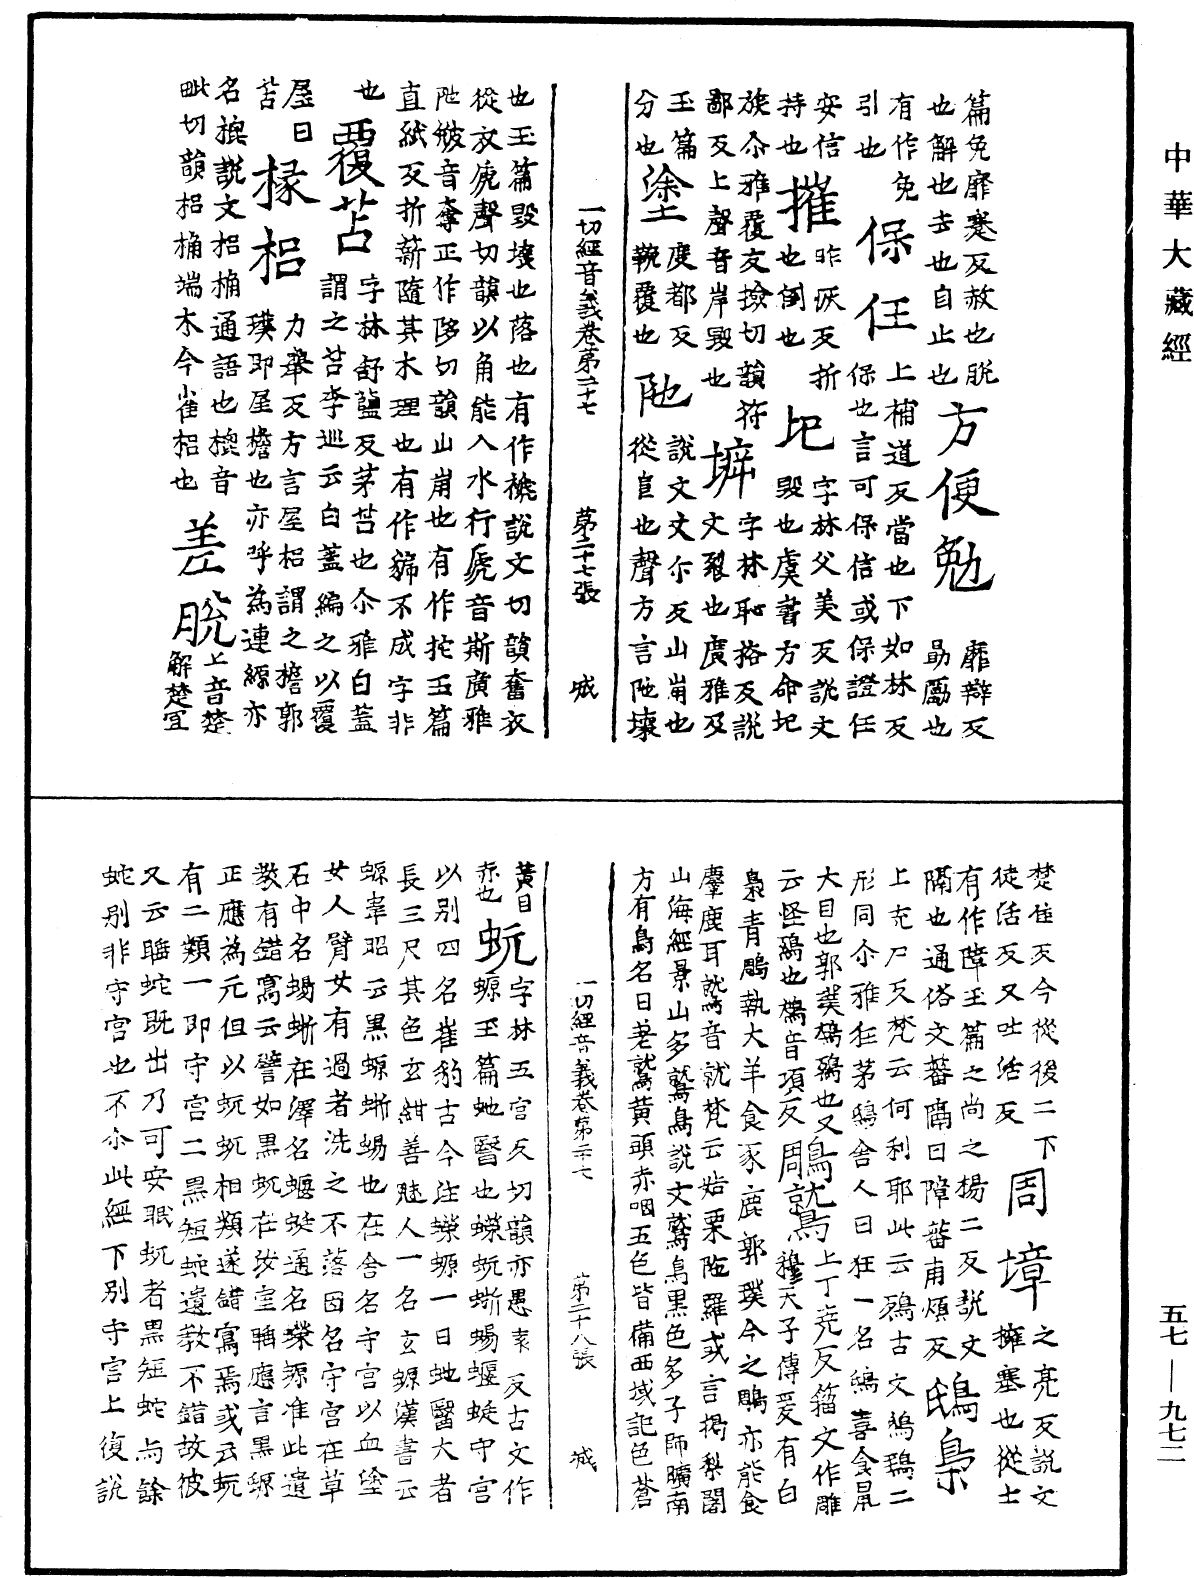 中華大藏經
篇免靡蹇反赦也脫
也解也去也自止也方便勉靡辯反
有作免勗勵也
引也保任上補道反當也下如林反
安信保也言可保信或保證任
持也摧昨灰反折圮字林父美反說文
也倒也毀也虞書方命圮
族尒雅覆友撿切韻符
鄙反上聲音岸毀也㙤字林恥格反說
文裂也廣雅及
玉篇塗度都反陁說文文尒反山崩也
分也塈覆也從𨸏也聲方言陁壞
一切經音義卷第二十七 第二十七張 城
也玉篇毀壞也落也有作褫說文切韻奮衣
從衣虒聲切韻以角能入水行虒音斯廣雅
陁𡐦音奪正作陊切韻山崩也有作拕玉篇
直紙反折薪隨其木理也有作𧳋不成字非
也覆苫字林舒鹽反茅苫也尒雅白蓋
謂之苫李巡云白蓋編之以覆
屋曰椽梠力舉反方言屋梠謂之檐郭
苫璞即屋檐也亦呼為連綿亦
名櫋說文梠桷通語也櫋音
毗切韻梠桷端木今雀梠也差脫上音楚
解楚宜
焚住反今從後二下周墇之亮反說文
徒活反又吐活反擁塞也從土
有作障玉篇之尚之楊二反說文鵄梟
隔也通俗文蕃隔曰障蕃甫煩反
上充尸反梵云何利耶此云鵄古文鵄鴟二
形同尒雅狂茅鴟舍人曰狂一名鴟喜食鼠
大目也郭璞鴟鵄也又鵰鷲上丁堯反籀文作雕
云怪鵄也鴟音項反穆天子傳爰有白
梟青鵰執犬羊食豕鹿郭璞今之鵰亦能食
麞鹿耳鷲音就梵云姞栗陁羅或言揭梨闍
山海經景山多鷲鳥說文鷲鳥黑色多子師曠南
方有鳥名曰羌鷲黃頭赤咽五色皆備西域記色蒼
一切經音義卷第二十七 第二十八張 城
黃目蚖字林五官反切韻亦愚袁反古文作
赤也螈玉篇虵醫也蠑蚖蜥蜴蝘蜓守宮
以別四名崔豹古今注蠑螈一曰虵醫大者
長三尺其色玄紺善魅人一名玄螈漢書云
螈韋昭云黑螈蜥蜴也在舍名守宮以血塗
女人臂女有過者洗之不落因名守宮在草
石中名蜴蜥在澤名蝘蜓通名蠑螈准此遺
教有錯寫云譬如黑蚖在汝室睡應言黑螈
正應為元但以蚖蚖相類遂錯寫焉或云蚖
有二類一即守宮二黑短蛇遺教不錯故彼
又云睡蛇既出乃可安眠蚖者黑短蛇与餘
蛇別非守宮也不尒此經下別守宮上復說
五七—九七二